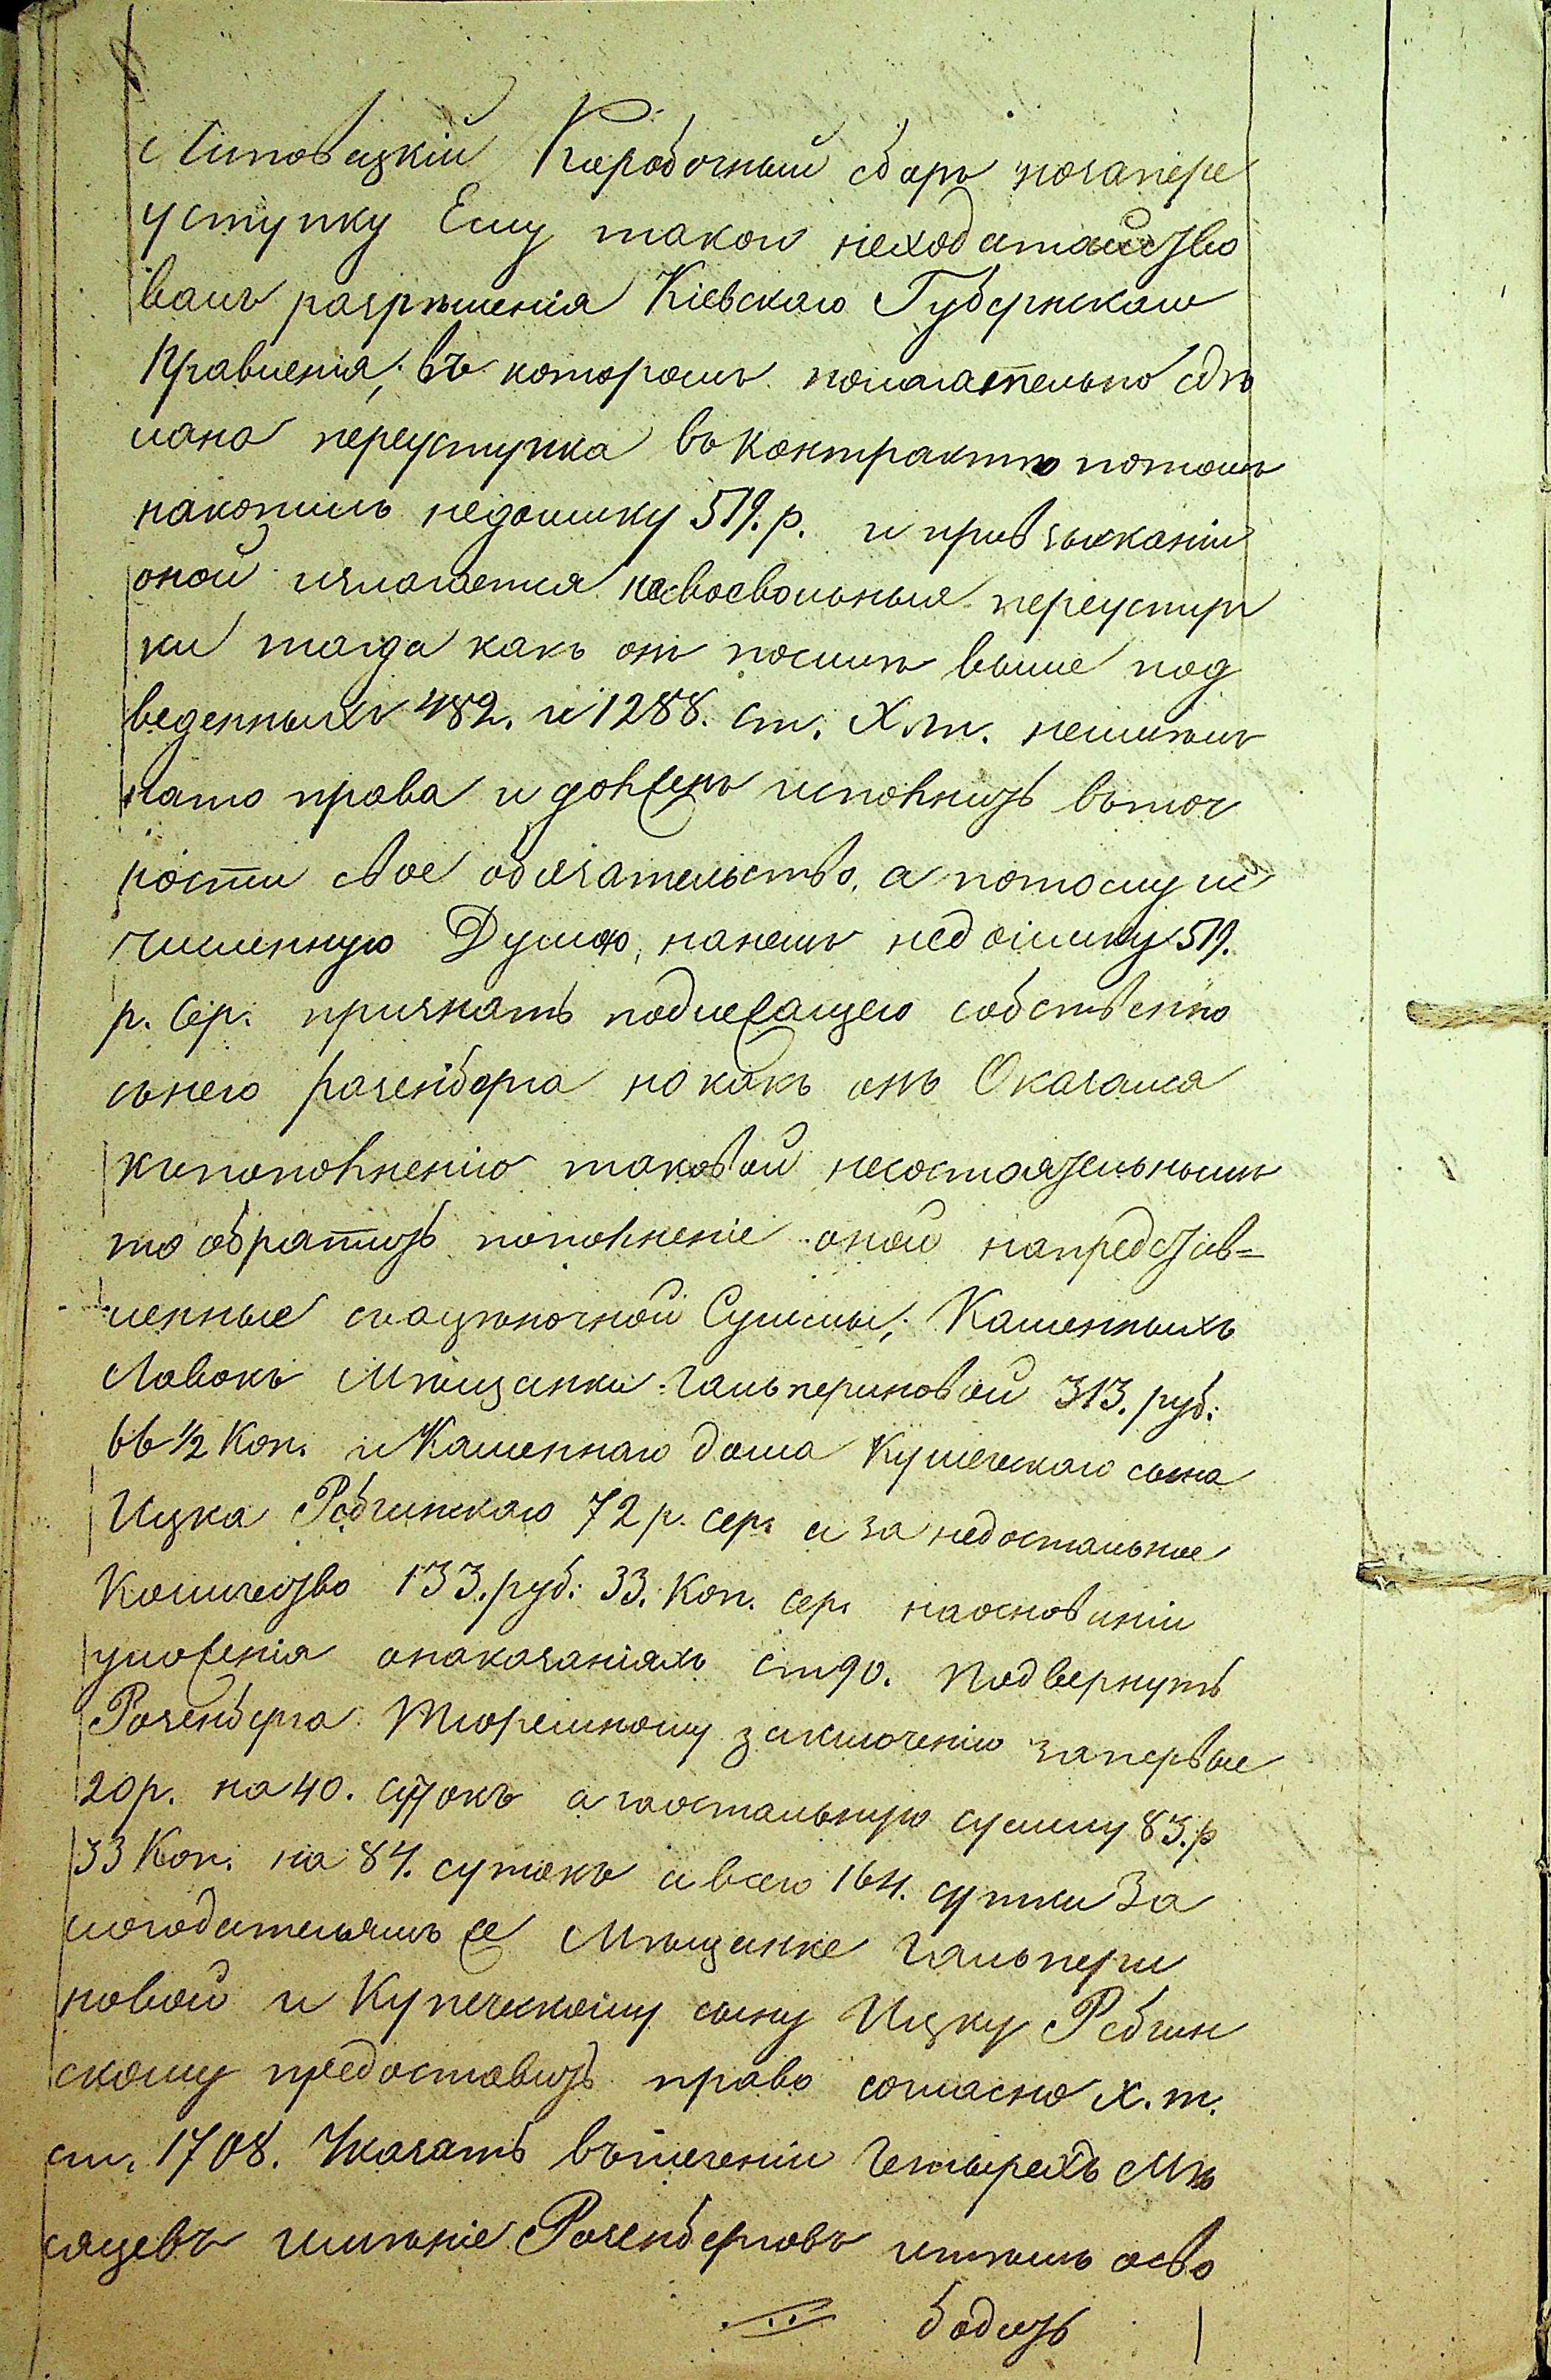 Литовецкій Коробочный сборъ нозапере
уступку Ему такой неходатайство
валъ разрѣшенія Кіевскаго Губернскаго
Правленія, въ которомъ полагательно сдѣ
лана переуступка въ контрактѣ потомъ
накопилъ недоимку 519. р. и привзысканіи
оной излагается насвоевольныя переуступ
ки тогда какъ онъ посилѣ выше под
веденныхъ 482. и 1288. ст. X. т. неимѣлъ
нато права и долженъ исполнить въточ
ности свое обязательство, а потому ис
численную Думою, нанемъ недоимку 519.
р. сер. признать подлежащею собственно
сънего Розенберга но какъ онъ Оказался
къпополненію таковой несостоятельнымъ
то обратить пополненіе оной напредстав=
ленные соцѣночной Суммы; Каменныхъ
Лавокъ Мѣщанки Гальпериновой 313. руб.
66 ½ Коп. и Каменнаго дома Купеческаго сына
Ицка Рабчинскаго 72 р. сер. а за недостальное
Количество 133. руб. 33. Коп. сер. наоснованіи
уложенія онаказаніяхъ ст 90. Подвергнуть
Розенберга Тюремному заключенію запервые
20 р. на 40. сутокъ а заостальную сумму 83. р
33 Коп. на 84. сутокъ а всего 164. сутки За
логодательямъ же Мѣщанке Гальпери
новой и Купеческому сыну Ицку Рабчин
скому предоставить право согласно X. т.
ст. 1708. Указать втеченіи Четырехъ Мѣ
сяцевъ имѣніе Розенберговъ итѣмъ осво
бодить